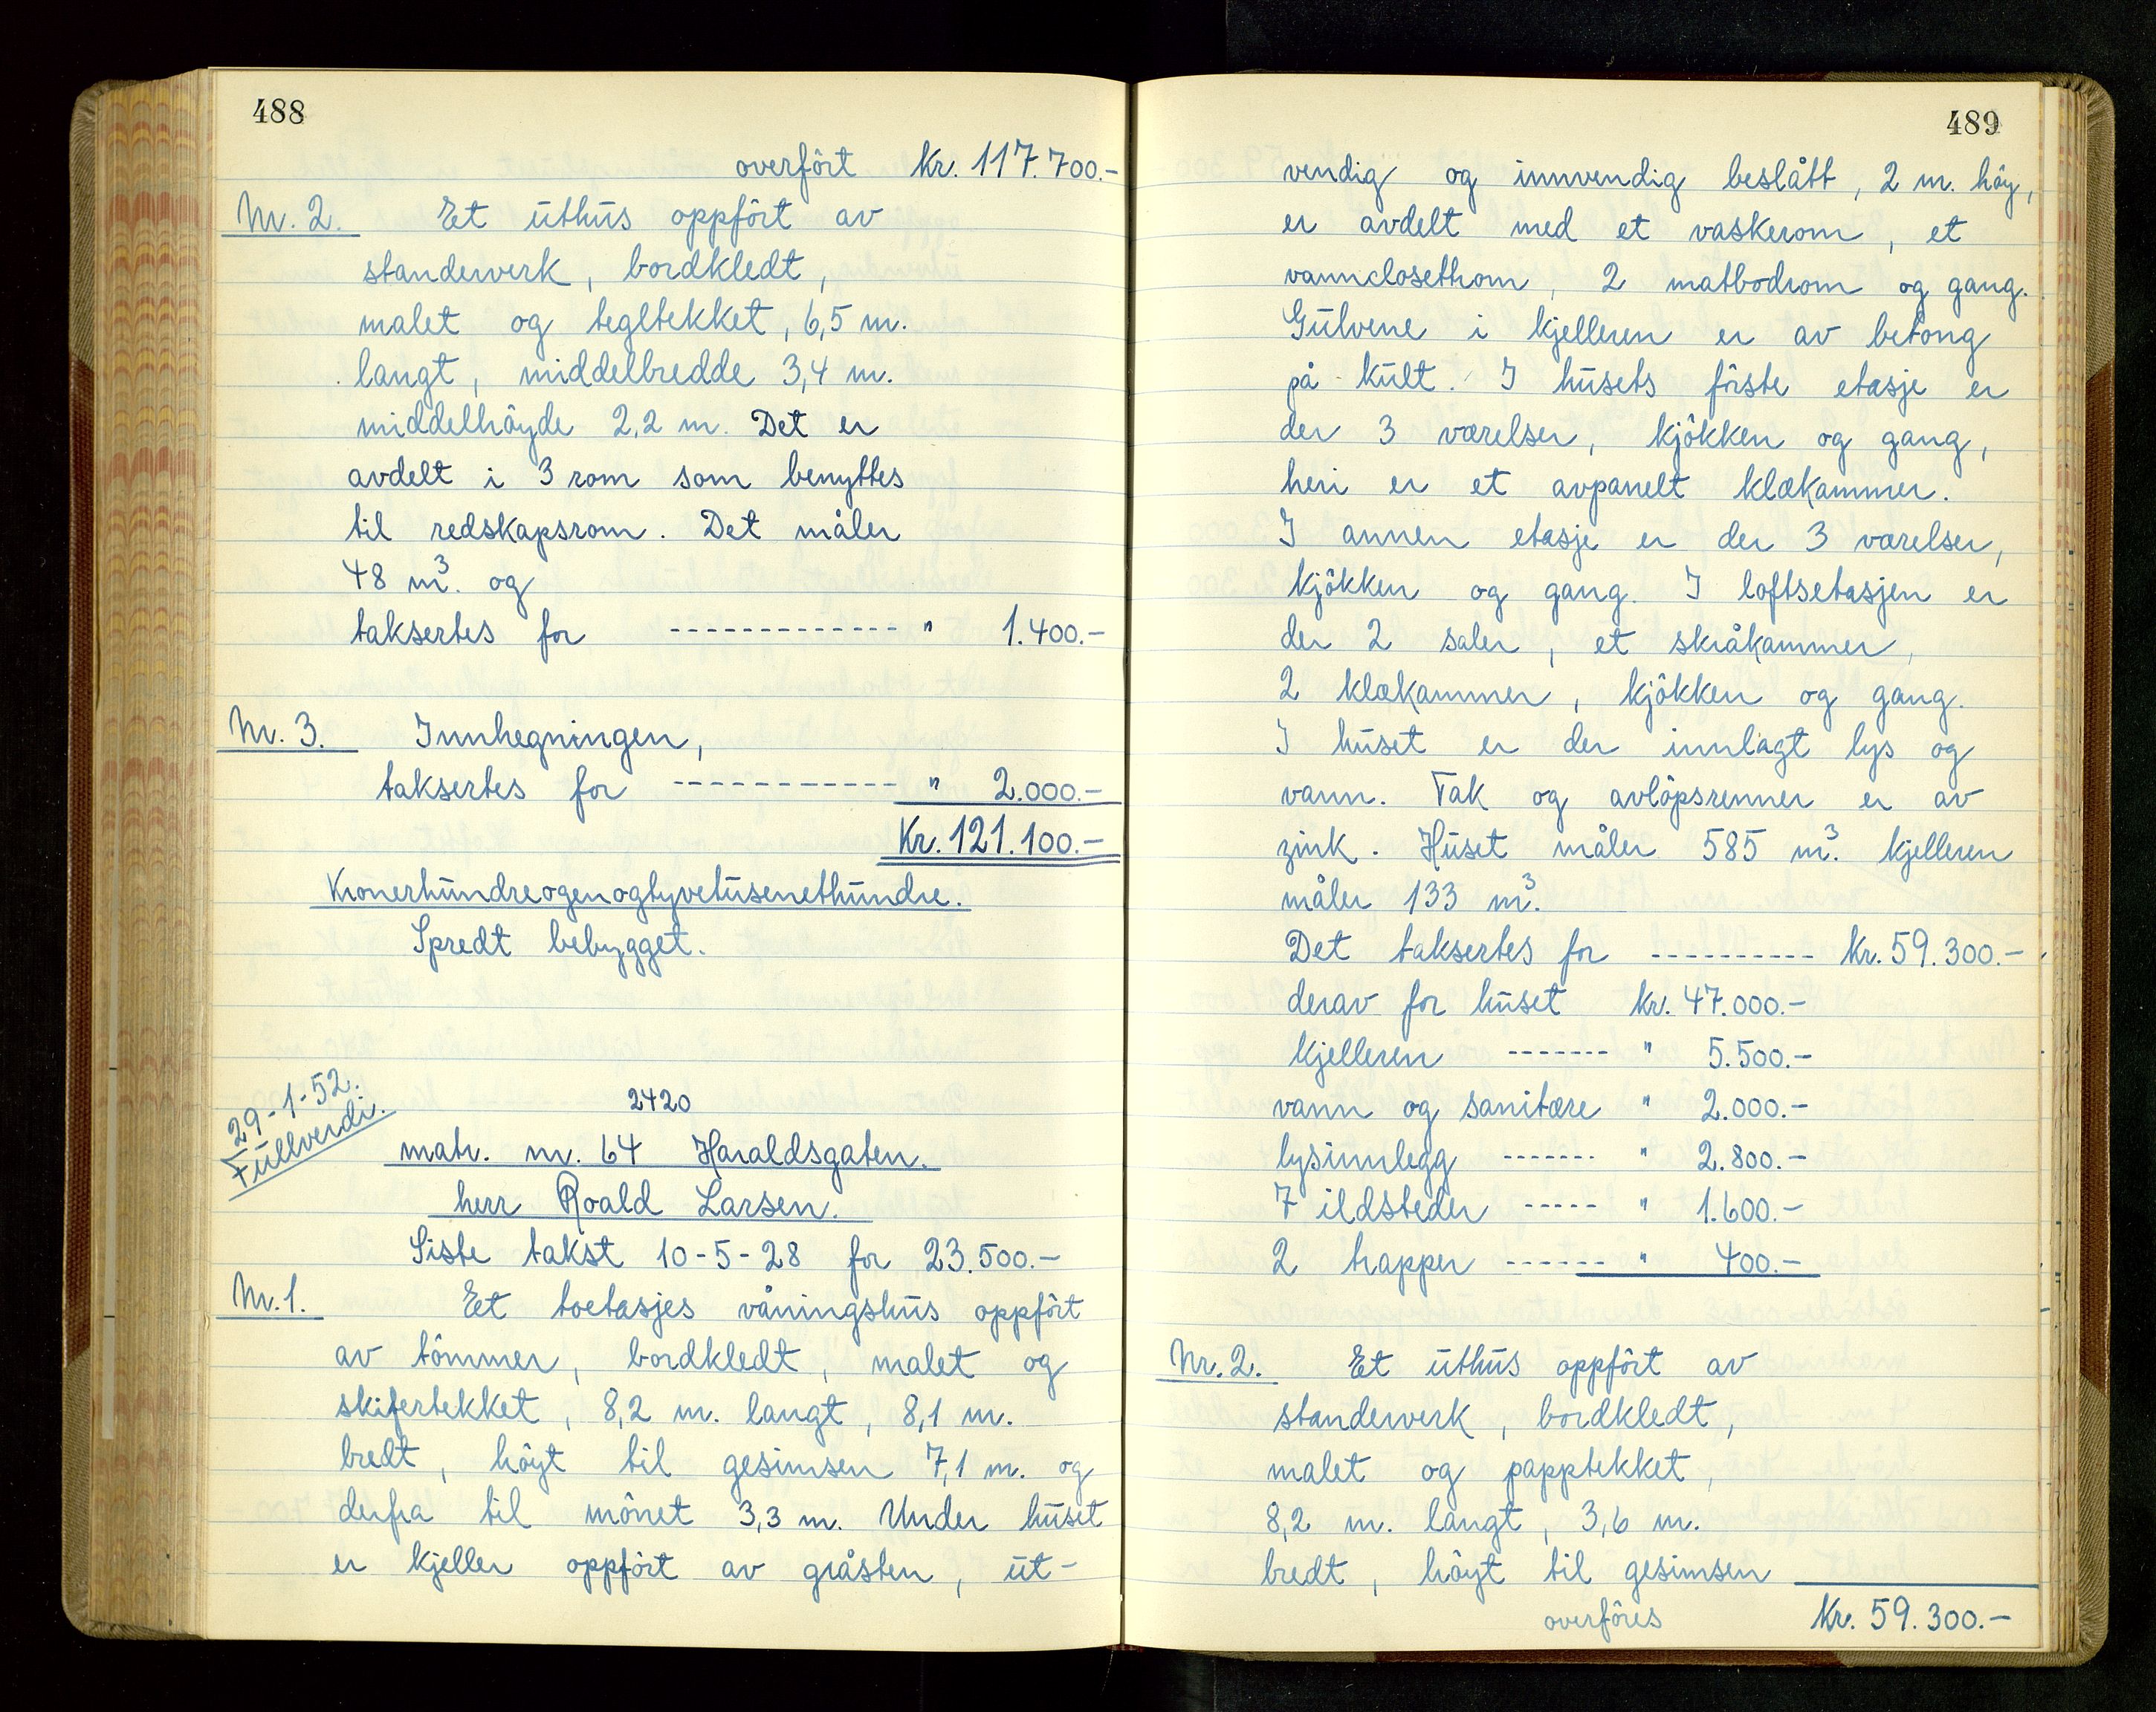 488
overfört Kr. 117.700.-
Nr. 2. Et uthus oppfört av
standerverk, bordkledt,
malet og tegltekket, 6,5 m.
langt, middelbredde 3,4 m.
middelhöyde 2,2 m. Det er
avdelt i 3 rom som benyttes
til redskapsrom. Det måler
48 m³. og
taksertes for ------------- " 1.400.-
Nr. 3. Innhegningen,
taksertes for ------------ " 2.000.-
Kr. 121.100.-
Kronerhundreogenogtyvetusenethundre.
Spredt bebygget.
29-1-52.
Fullverdi.
2420
matr. nr. 64 Haraldsgaten.
herr Roald Larsen.
Siste takst 10-5-28 for 23.500.-
Nr. 1. Et toetasjes våningshus oppfört
av tömmer, bordkledt, malet og
skifertekket, 8,2 m. langt, 8,1 m.
bredt, höyt til gesimsen 7,1 m. og
derfra til mönet 3,3 m. Under huset
er kjeller oppfört av gråsten, ut-
489
vendig og innvendig beslått, 2 m. höy,
er avdelt med et vaskerom, et
vannclosethom, 2 matbodrom og gang.
Gulvene i kjelleren er av betong
på kult. I husets förste etasje er
der 3 værelser, kjökken og gang,
heri er et avpanelt klækammer.
I annen etasje er der 3 værelser,
kjökken og gang. I loftsetasjen er
der 2 saler, et skråkammer,
2 klækammer, kjökken og gang.
I huset er der innlagt lys og
vann. Tak og avlöpsrenner er av
zink. Huset måler 585 m³. kjelleren
måler 133 m³.
Det taksertes for ---------- Kr. 59.300.-
derav for huset kr. 47.000.-
kjelleren ------- " 5.500.-
vann og sanitære " 2.000.-
lysinnlegg ------- " 2.800.-
7 ildsteder ----- " 1.600.-
2 trapper ------ " 400.-
Nr. 2. Et uthus oppfört av
standerverk, bordkledt,
malet og papptekket,
8,2 m. langt, 3,6 m.
bredt, höyt til gesimsen
overföres Kr. 59.300.-